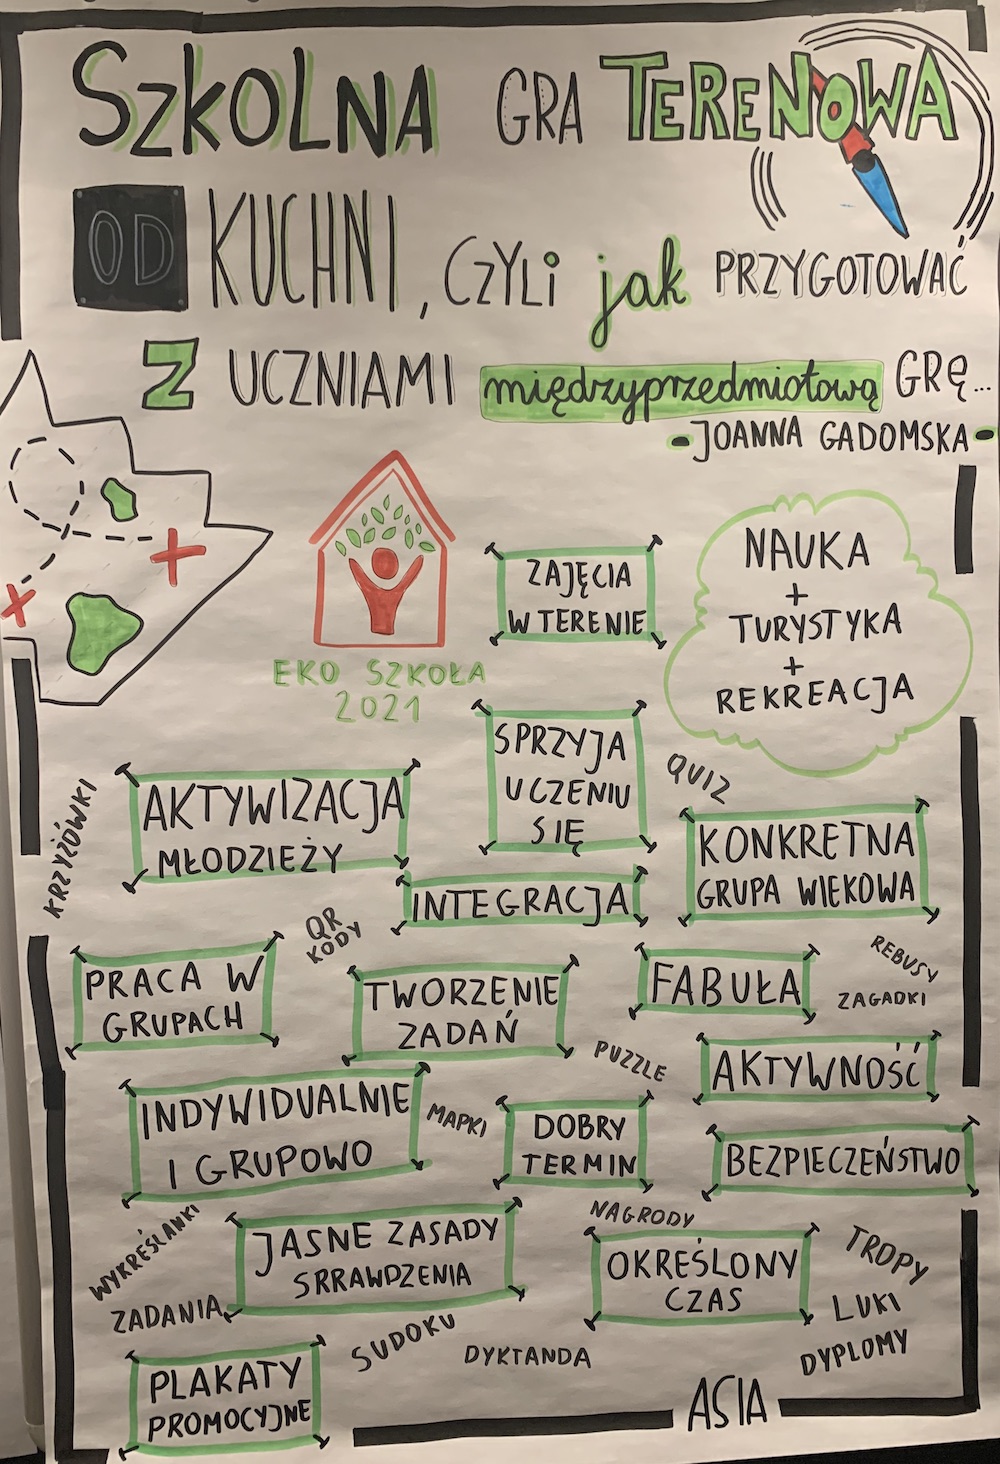 SZKOLNA GRA TERENOWA
OD KUCHNI, CZYLI jak PRZYGOTOWAĆ
Z UCZNIAMI międzyprzedmiotową GRĘ...
- JOANNA GADOMSKA -
EKO SZKOŁA
2021
ZAJĘCIA
W TERENIE
NAUKA
+
TURYSTYKA
+
REKREACJA
SPRZYJA
UCZENIU
SIĘ
QUIZ
KRZYŻÓWKI
AKTYWIZACJA
MŁODZIEŻY
KONKRETNA
GRUPA WIEKOWA
INTEGRACJA
QR
KODY
PRACA W
GRUPACH
TWORZENIE
ZADAŃ
FABUŁA
REBUSY
ZAGADKI
PUZZLE
AKTYWNOŚĆ
INDYWIDUALNIE
I GRUPOWO
MAPKI
DOBRY
TERMIN
BEZPIECZEŃSTWO
WYKREŚLANKI
JASNE ZASADY
SRRAWDZENIA
NAGRODY
OKREŚLONY
CZAS
TROPY
LUKI
DYPLOMY
ZADANIA
SUDOKU
DYKTANDA
PLAKATY
PROMOCYJNE
ASIA